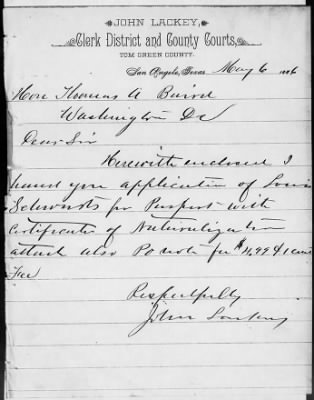 JOHN LACKEY,
Clerk District and County Courts,
TOM GREEN COUNTY.
San Angelo, Texas May 6 1886
Hon Thomas A
Washington Dc
Dear Sir
Herewith enclosed I
hand you application of Louis
for Passport with
Certificate of Naturalization
attach also PO note for $4.99 & 1 cent
Respectfully
John Lackey